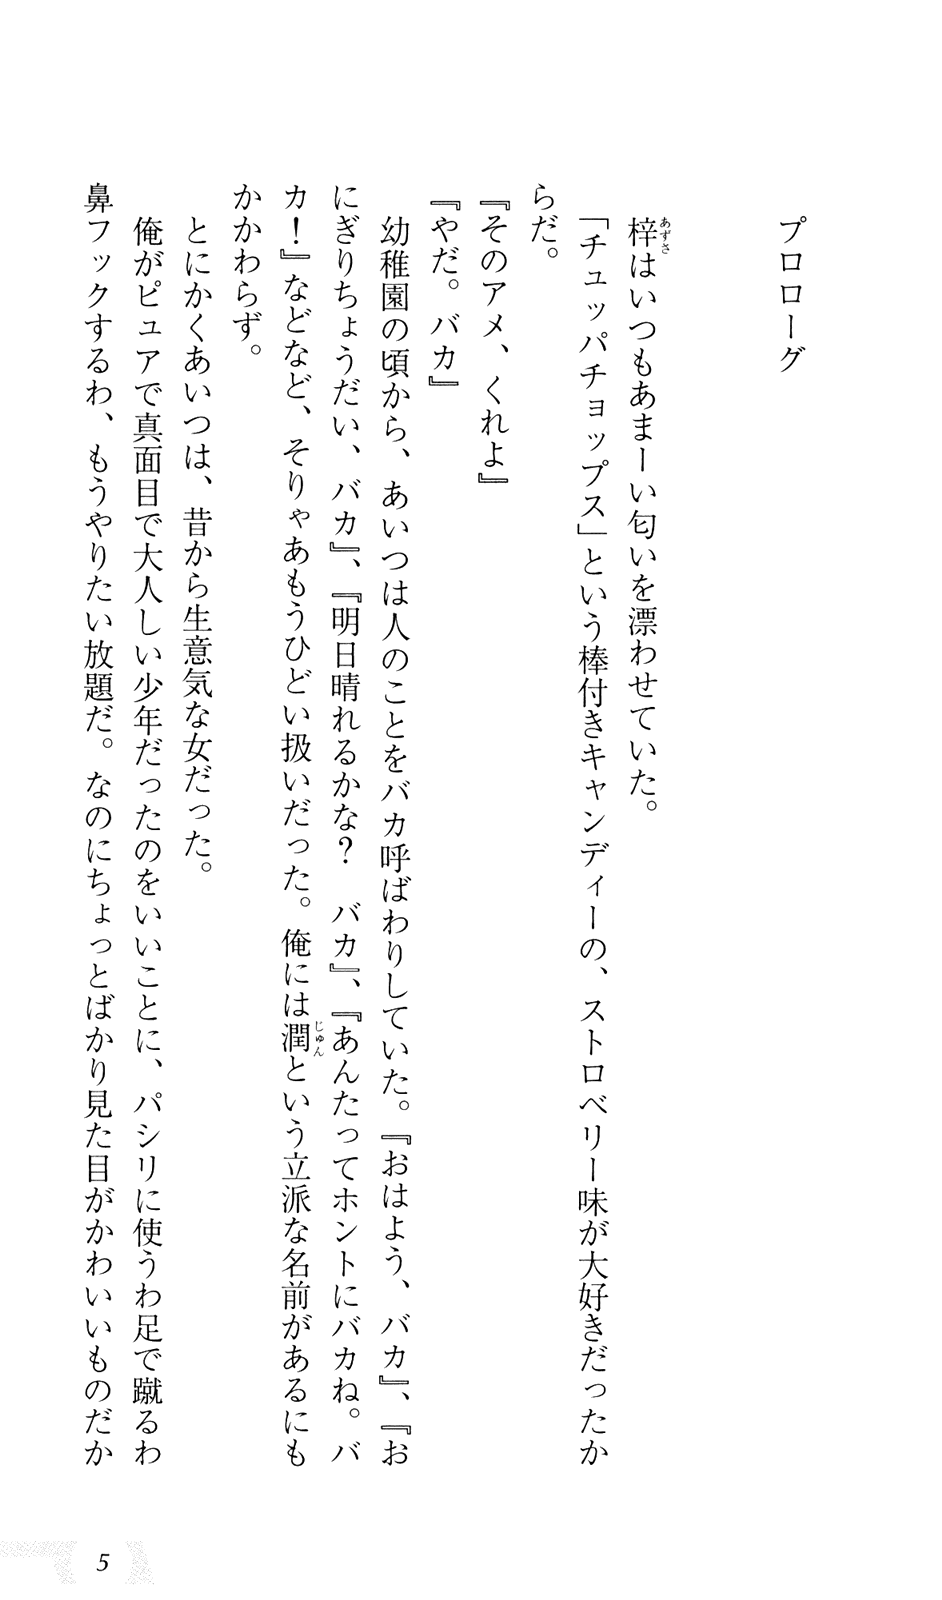 プロローグ
梓はいつもあまーい匂いを漂わせていた。
「チュッパチョップス」という棒付きキャンディーの、ストロベリー味が大好きだったか
らだ。
『そのアメ、くれよ』
『やだ。バカ』
幼稚園の頃から、あいつは人のことをバカ呼ばわりしていた。『おはよう、バカ』、『お
にぎりちょうだい、バカ』、『明日晴れるかな？　バカ』、『あんたってホントにバカね。バ
カ！』などなど、そりゃあもうひどい扱いだった。俺には潤という立派な名前があるにも
かかわらず。
とにかくあいつは、昔から生意気な女だった。
俺がピュアで真面目で大人しい少年だったのをいいことに、パシリに使うわ足で蹴るわ
鼻フックするわ、もうやりたい放題だ。なのにちょっとばかり見た目がかわいいものだか
あずさ
じゅん
5